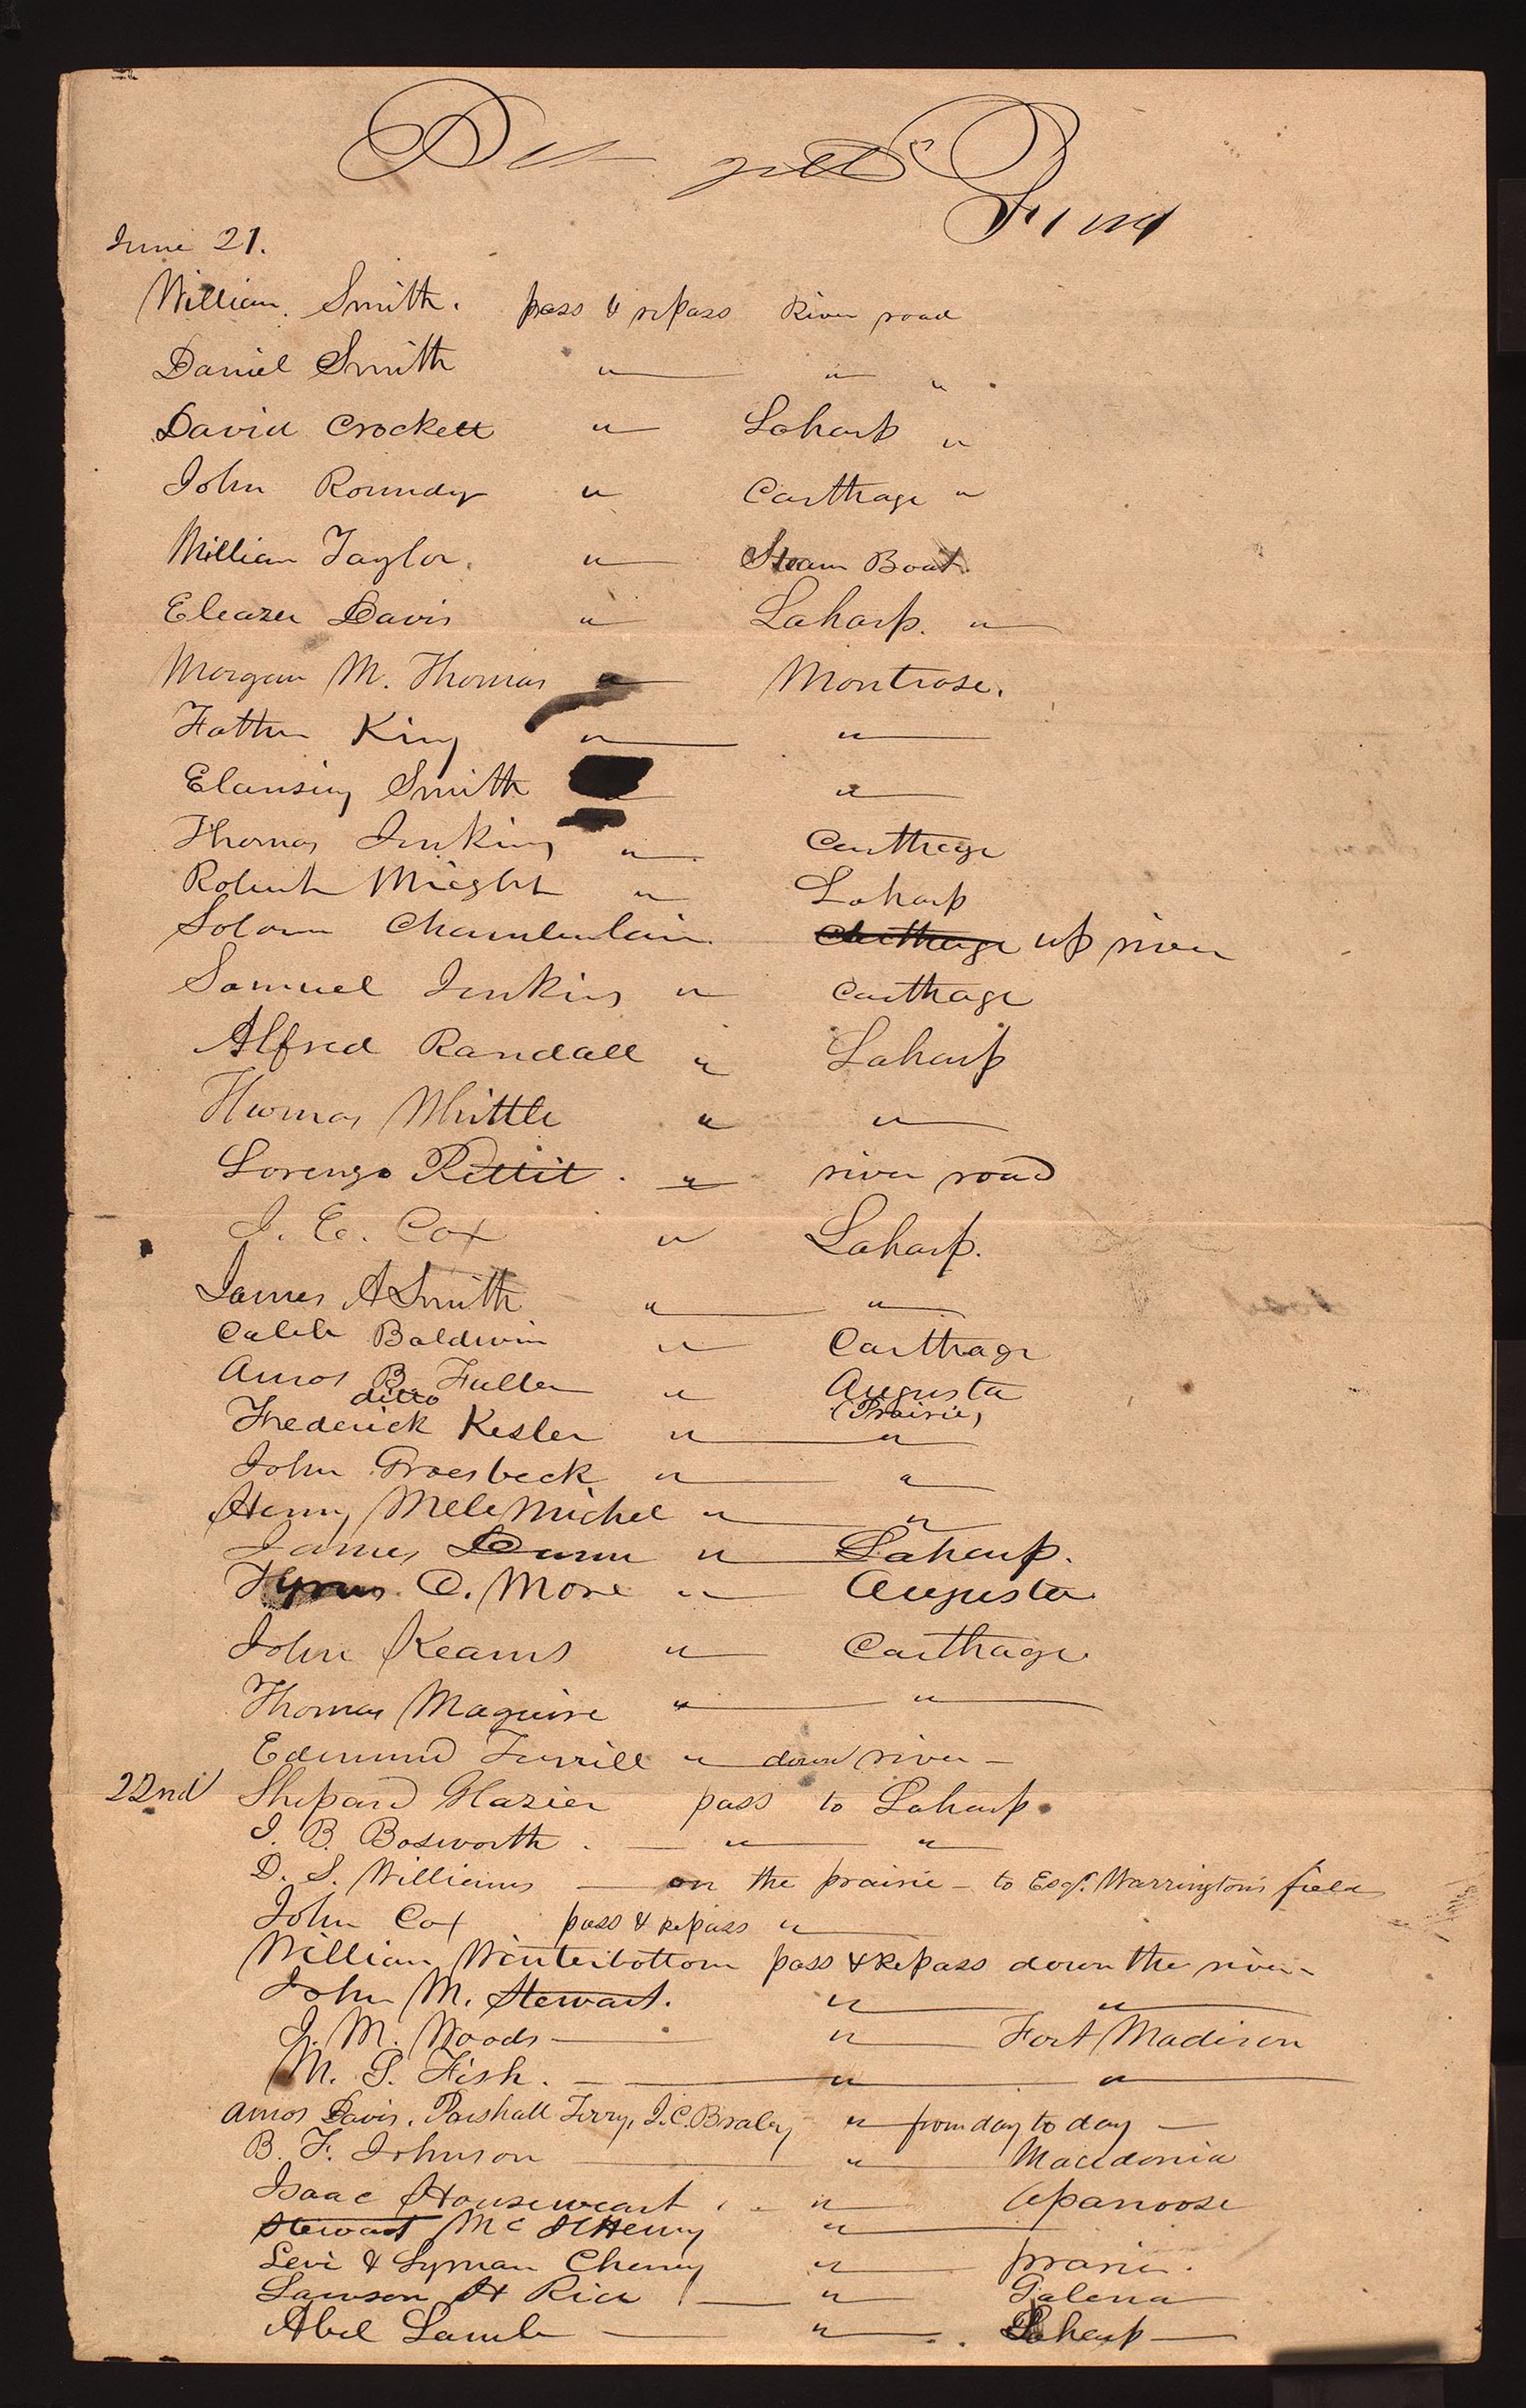 June 21.
William Smith. pass & repass River road
Daniel Smith " " "
David Crockett " Laharp "
John Roundy " Carthage "
William Taylor. " Steam Boat.
Eleazer Davis " Laharp. "
Morgan M. Thomas " Montrose.
Father King " "
Elansing Smith "
Thomas Jenkins " Carthage
Robert "  Laharp
Solomn Chamberlain. Carthage up river
Samuel Jenkins " Carthage
Alfred Randall " Laharp
Thomas Whittle " "
Lorenzo Pettit. " river road
J. E. Cox " Laharp.
James A Smith " "
Caleb Baldwin " Carthage
Amos B. Fuller " Augusta
ditto (Prairie)
Frederick Kesler " "
John Groesbeck " "
Henny Mele Michel " "
James Dunn " Laharp.
C. More " Augusta
John Kearns " Carthage
Thomas Maguire " "
Edmund Turrill " down river
22nd Shepard Glazier pass to Laharp
J. B. Bosworth. " "
D. S. Williams on the prairie to Esqr. Warrington's field
John Cox pass & repass "
William Winterbottom pass & Repass down the river
John M. Stewart. " "
J. M. Woods " Fort Madison
M. S. Fish. " "
Amos Davis, Parshall Terry, J. C. Braley " from day to day
B. F. Johnson " Macedonia
Isaac Houseweart " Apanoose
Stewart Mc Henry "
Levi & Lyman Cheney " prarie.
Lawson H Rice " Galena
Abel Lamb " Laharp